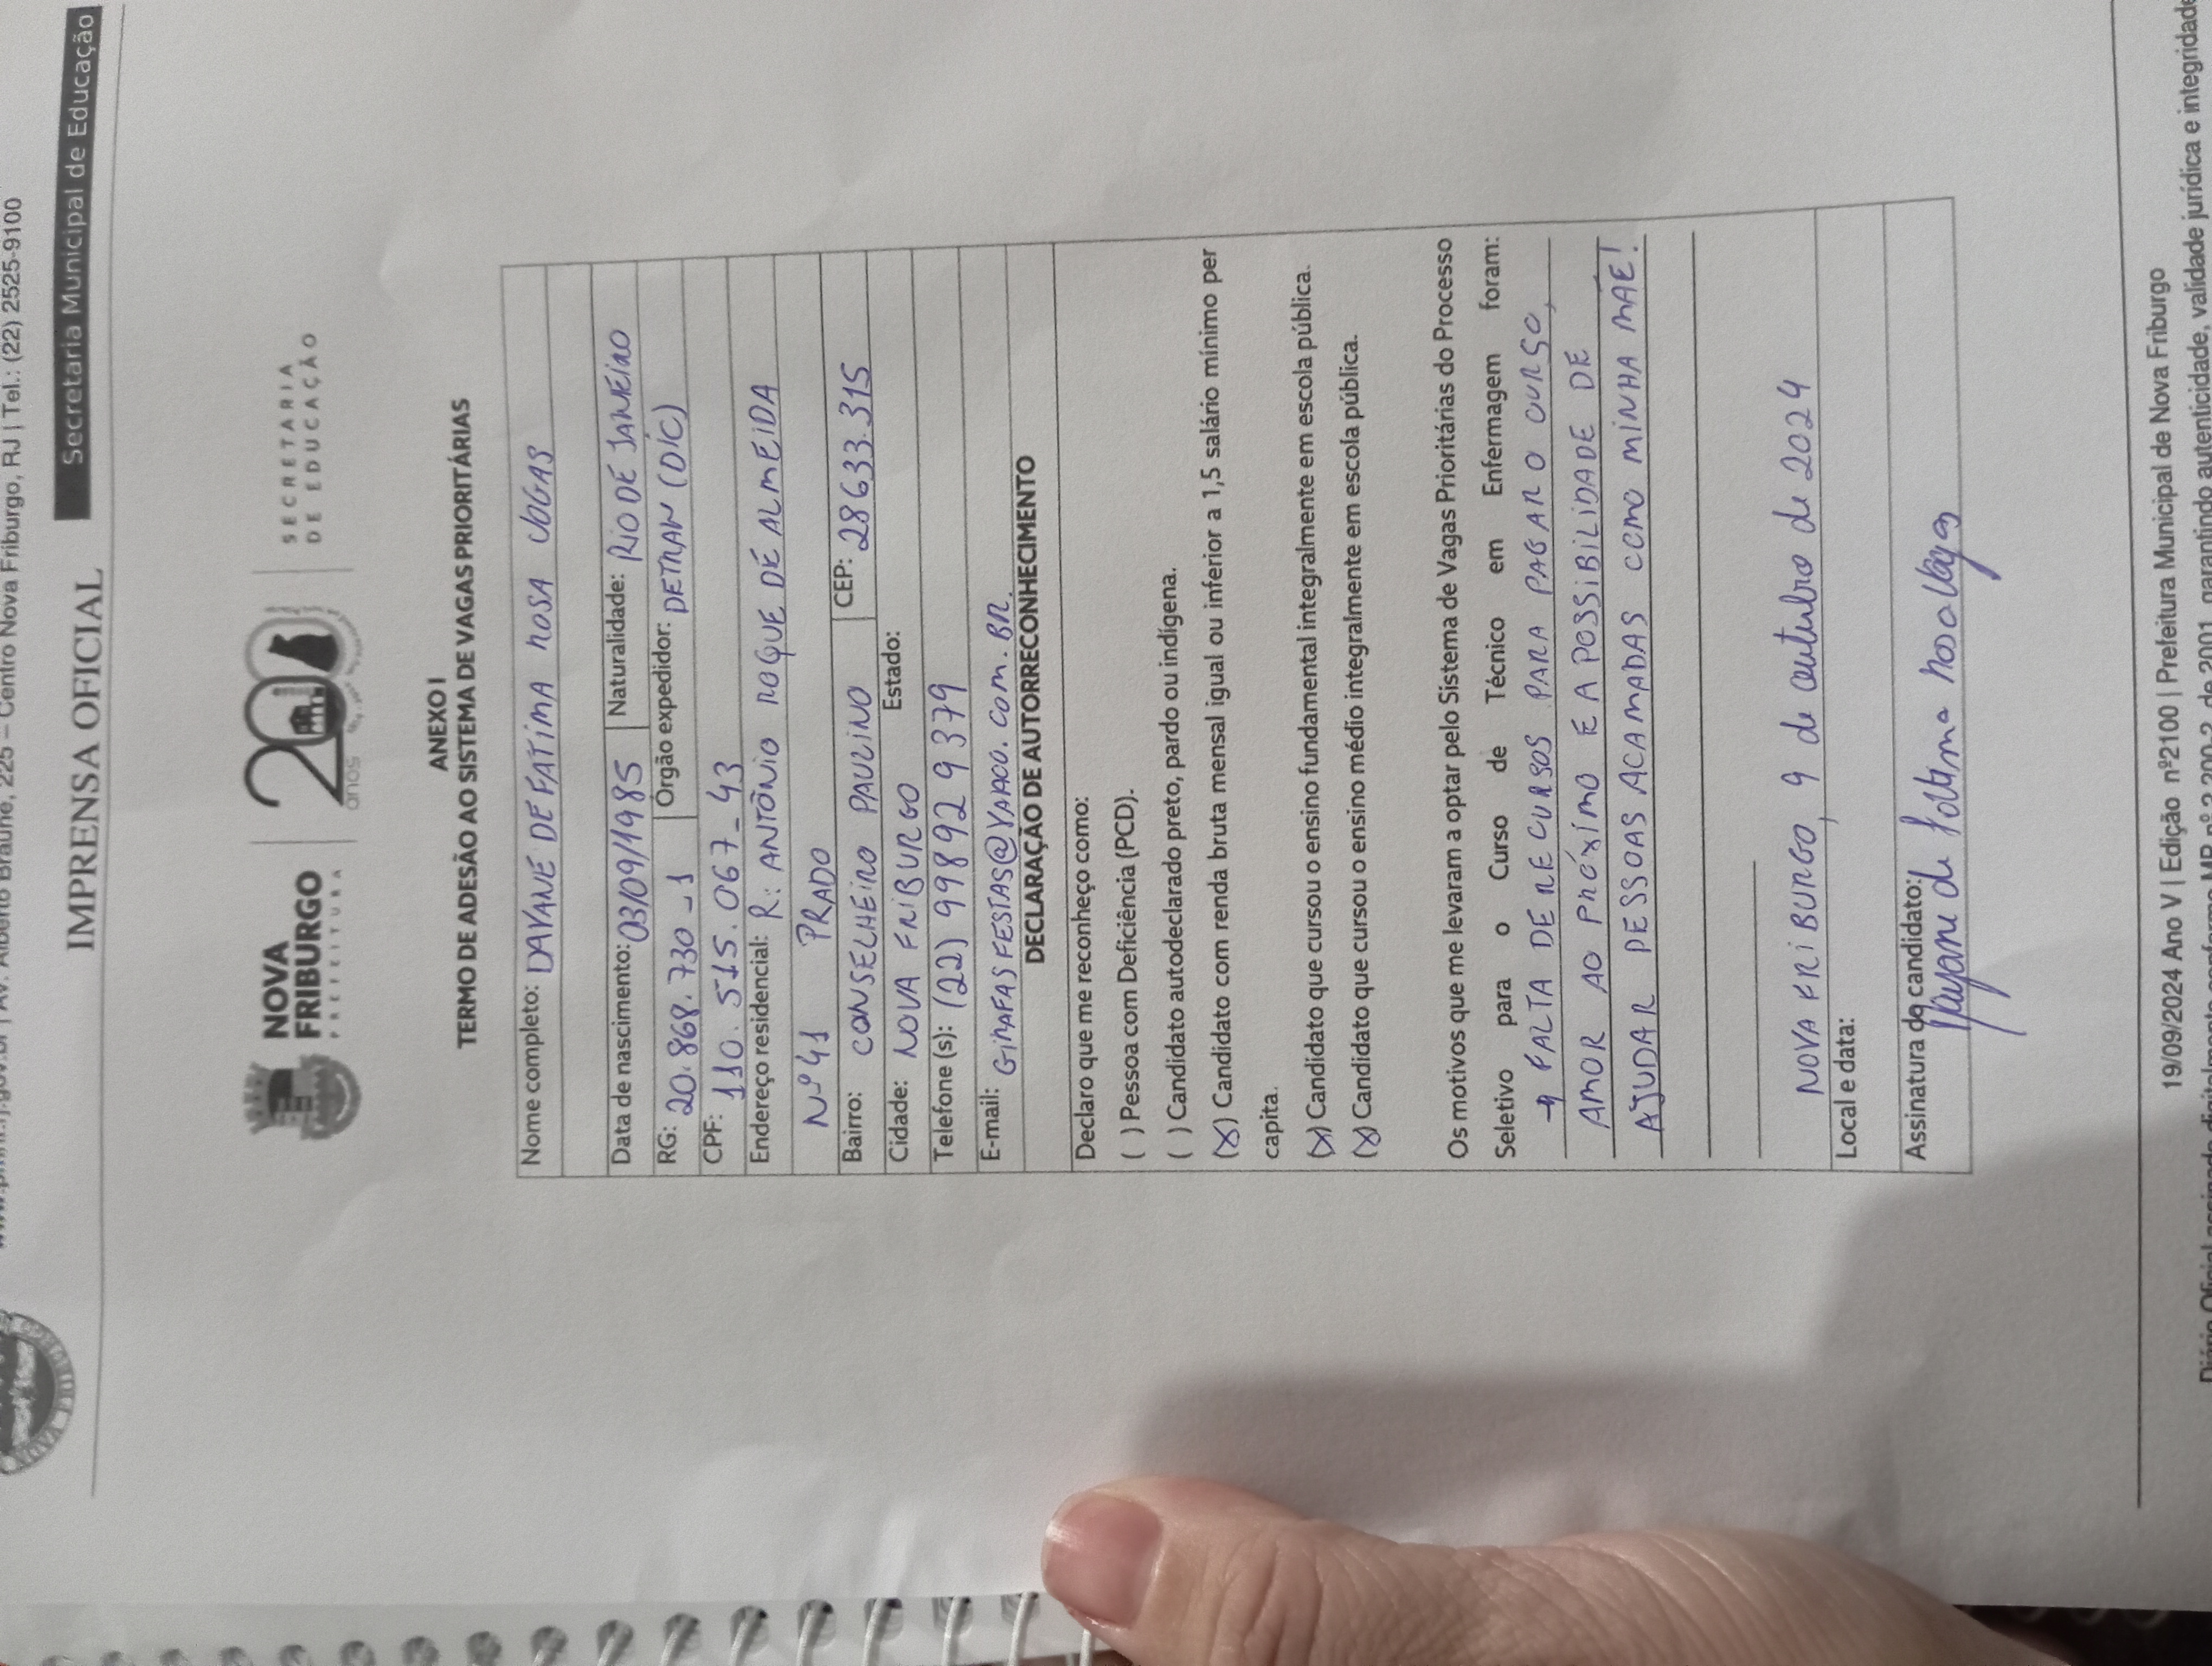 www.pmnf.rj.gov.br | Av. Alberto Braune, 225 – Centro Nova Friburgo, RJ | Tel.: (22) 2525-9100
NOVA FRIBURGO
IMPRENSA OFICIAL
Secretaria Municipal de Educação
NOVA
FRIBURGO
PREFEITURA
200
anos
SECRETARIA
DE EDUCAÇÃO
ANEXO I
TERMO DE ADESÃO AO SISTEMA DE VAGAS PRIORITÁRIAS
Nome completo: DAYANE DE FATIMA ROSA VOGAS
Data de nascimento: 03/09/1985 Naturalidade: RIO DE JANEIRO
RG: 20.868.730-1 Órgão expedidor: DETRAN (DIC)
CPF: 110.515.067-43
Endereço residencial: R: ANTÔNIO ROQUE DE ALMEIDA
Nº 41 PRADO
Bairro: CONSELHEIRO PAULINO CEP: 28633.315
Cidade: NOVA FRIBURGO Estado:
Telefone (s): (22) 99892 9379
E-mail: GIRAFASFESTAS@YAHOO.COM.BR.
DECLARAÇÃO DE AUTORRECONHECIMENTO
Declaro que me reconheço como:
( ) Pessoa com Deficiência (PCD).
( ) Candidato autodeclarado preto, pardo ou indígena.
(X) Candidato com renda bruta mensal igual ou inferior a 1,5 salário mínimo per
capita.
(X) Candidato que cursou o ensino fundamental integralmente em escola pública.
(X) Candidato que cursou o ensino médio integralmente em escola pública.
Os motivos que me levaram a optar pelo Sistema de Vagas Prioritárias do Processo
Seletivo para o Curso de Técnico em Enfermagem foram:
→ FALTA DE RECURSOS PARA PAGAR O CURSO,
AMOR AO PRÓXIMO E A POSSIBILIDADE DE
AJUDAR PESSOAS ACAMADAS COMO MINHA MÃE!
NOVA FRIBURGO, 9 de outubro de 2024
Local e data:
Assinatura do candidato:
Dayane de Fatima Rosa Vogas
19/09/2024 Ano V | Edição nº2100 | Prefeitura Municipal de Nova Friburgo
Diário Oficial assinado digitalmente conforme MP nº 2.200-2, de 2001, garantindo autenticidade, validade jurídica e integridade